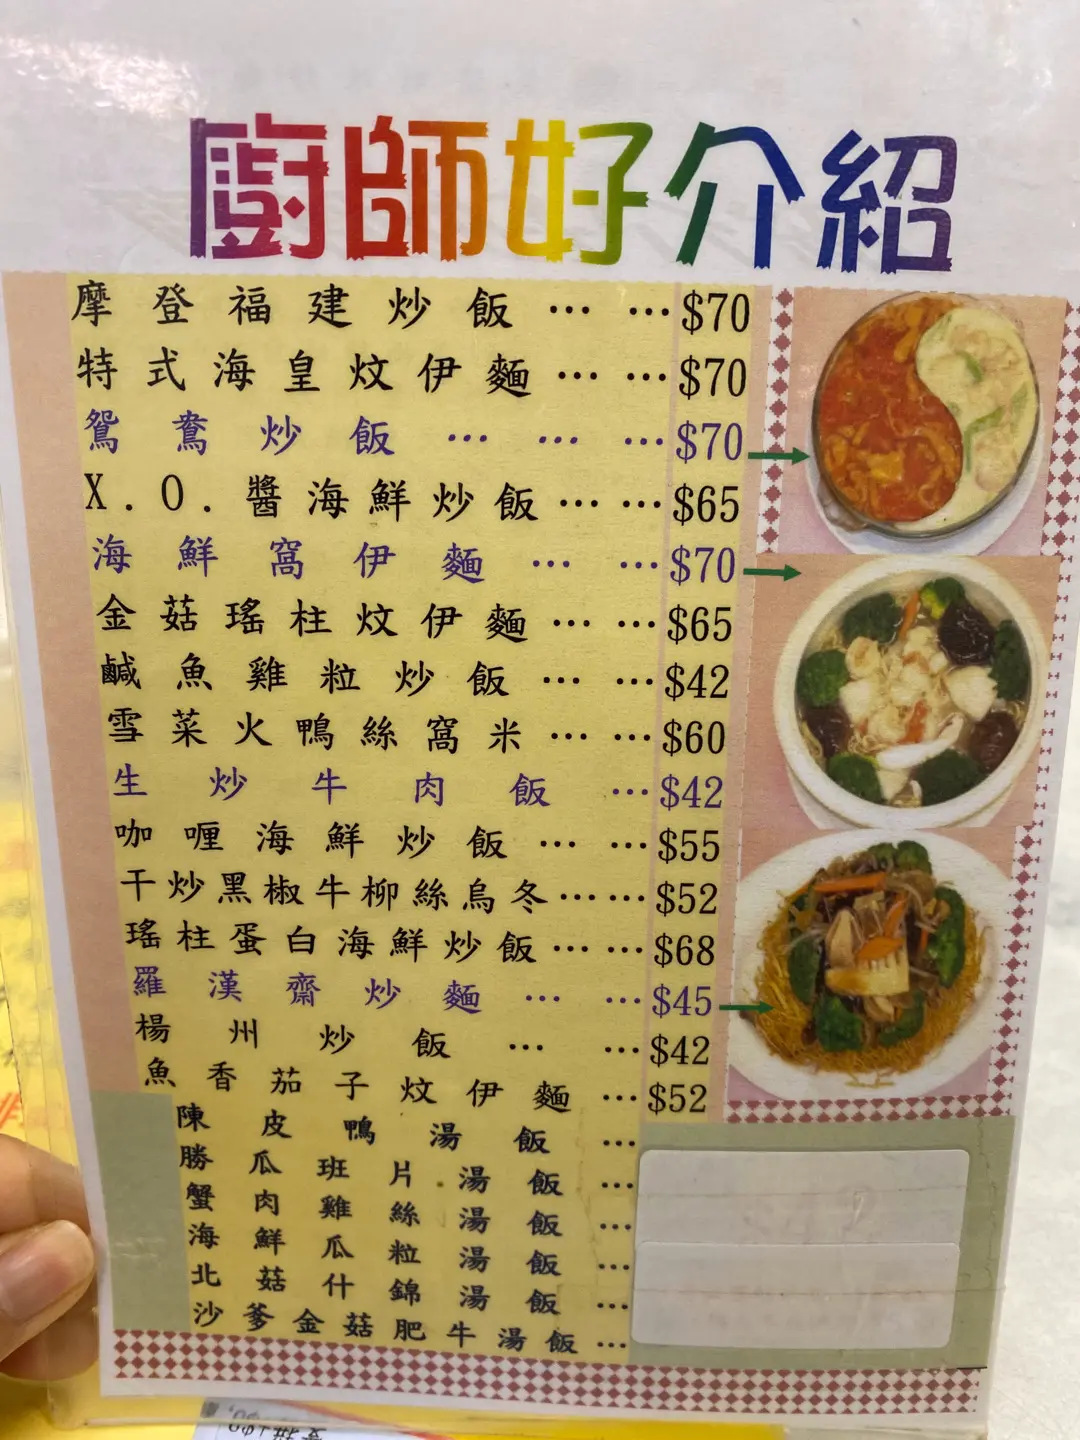 廚師好介紹
摩登福建炒飯……$70
特式海皇炆伊麵……$70
鴛鴦炒飯………$70
X.O.醬海鮮炒飯……$65
海鮮窩伊麵……$70
金菇瑤柱炆伊麵……$65
鹹魚雞粒炒飯……$42
雪菜火鴨絲窩米……$60
生炒牛肉飯…$42
咖喱海鮮炒飯……$55
干炒黑椒牛柳絲烏冬……$52
瑤柱蛋白海鮮炒飯……$68
羅漢齋炒麵……$45
楊州炒飯……$42
魚香茄子炆伊麵…$52
陳皮鴨湯飯…
勝瓜班片湯飯…
蟹肉雞絲湯飯…
海鮮瓜粒湯飯…
北菇什錦湯飯…
沙爹金菇肥牛湯飯…